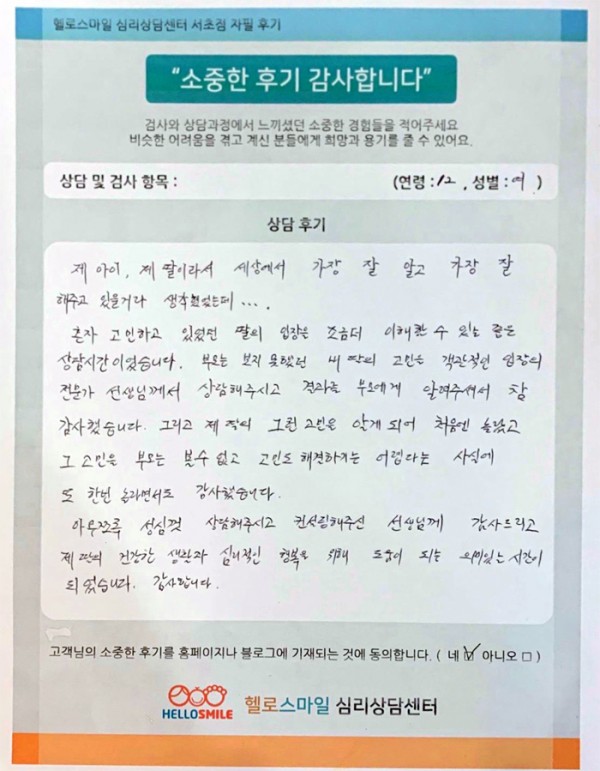 헬로스마일 심리상담센터 서초점 자필 후기
“소중한 후기 감사합니다”
검사와 상담과정에서 느끼셨던 소중한 경험들을 적어주세요
비슷한 어려움을 겪고 계신 분들에게 희망과 용기를 줄 수 있어요.
상담 및 검사 항목 : (연령 : 12 , 성별 : 여 )
상담 후기
제 아이, 제 딸이라서 세상에서 가장 잘 알고 가장 잘
해주고 있을거라 생각했었는데 ....
혼자 고민하고 있었던 딸의 입장을 조금더 이해할 수 있는 좋은
상담시간이었습니다. 부모는 보지 못했던 내 딸의 고민을 객관적인 입장의
전문가 선생님께서 상담해주시고 결과를 부모에게 알려주셔서 참
감사했습니다. 그리고 제 딸의 그런 고민을 알게 되어 처음엔 놀랐고
그 고민을 부모는 볼수 없고 고민도 해결하기는 어렵다는 사실에
또 한번 놀라면서도 감사했습니다.
아무쪼록 성심껏 상담해주시고 컨설팅해주신 선생님께 감사드리고
제 딸의 건강한 생활과 심리적인 행복을 위해 도움이 되는 의미있는 시간이
되었습니다. 감사합니다.
고객님의 소중한 후기를 홈페이지나 블로그에 기재되는 것에 동의합니다. ( 네 ☑ 아니오 □ )
HELLOSMILE 헬로스마일 심리상담센터